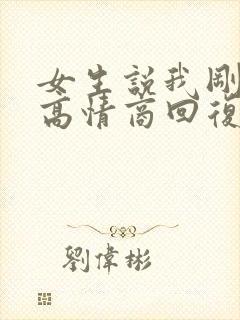 女生説我剛
高情商回復
劉偉彬